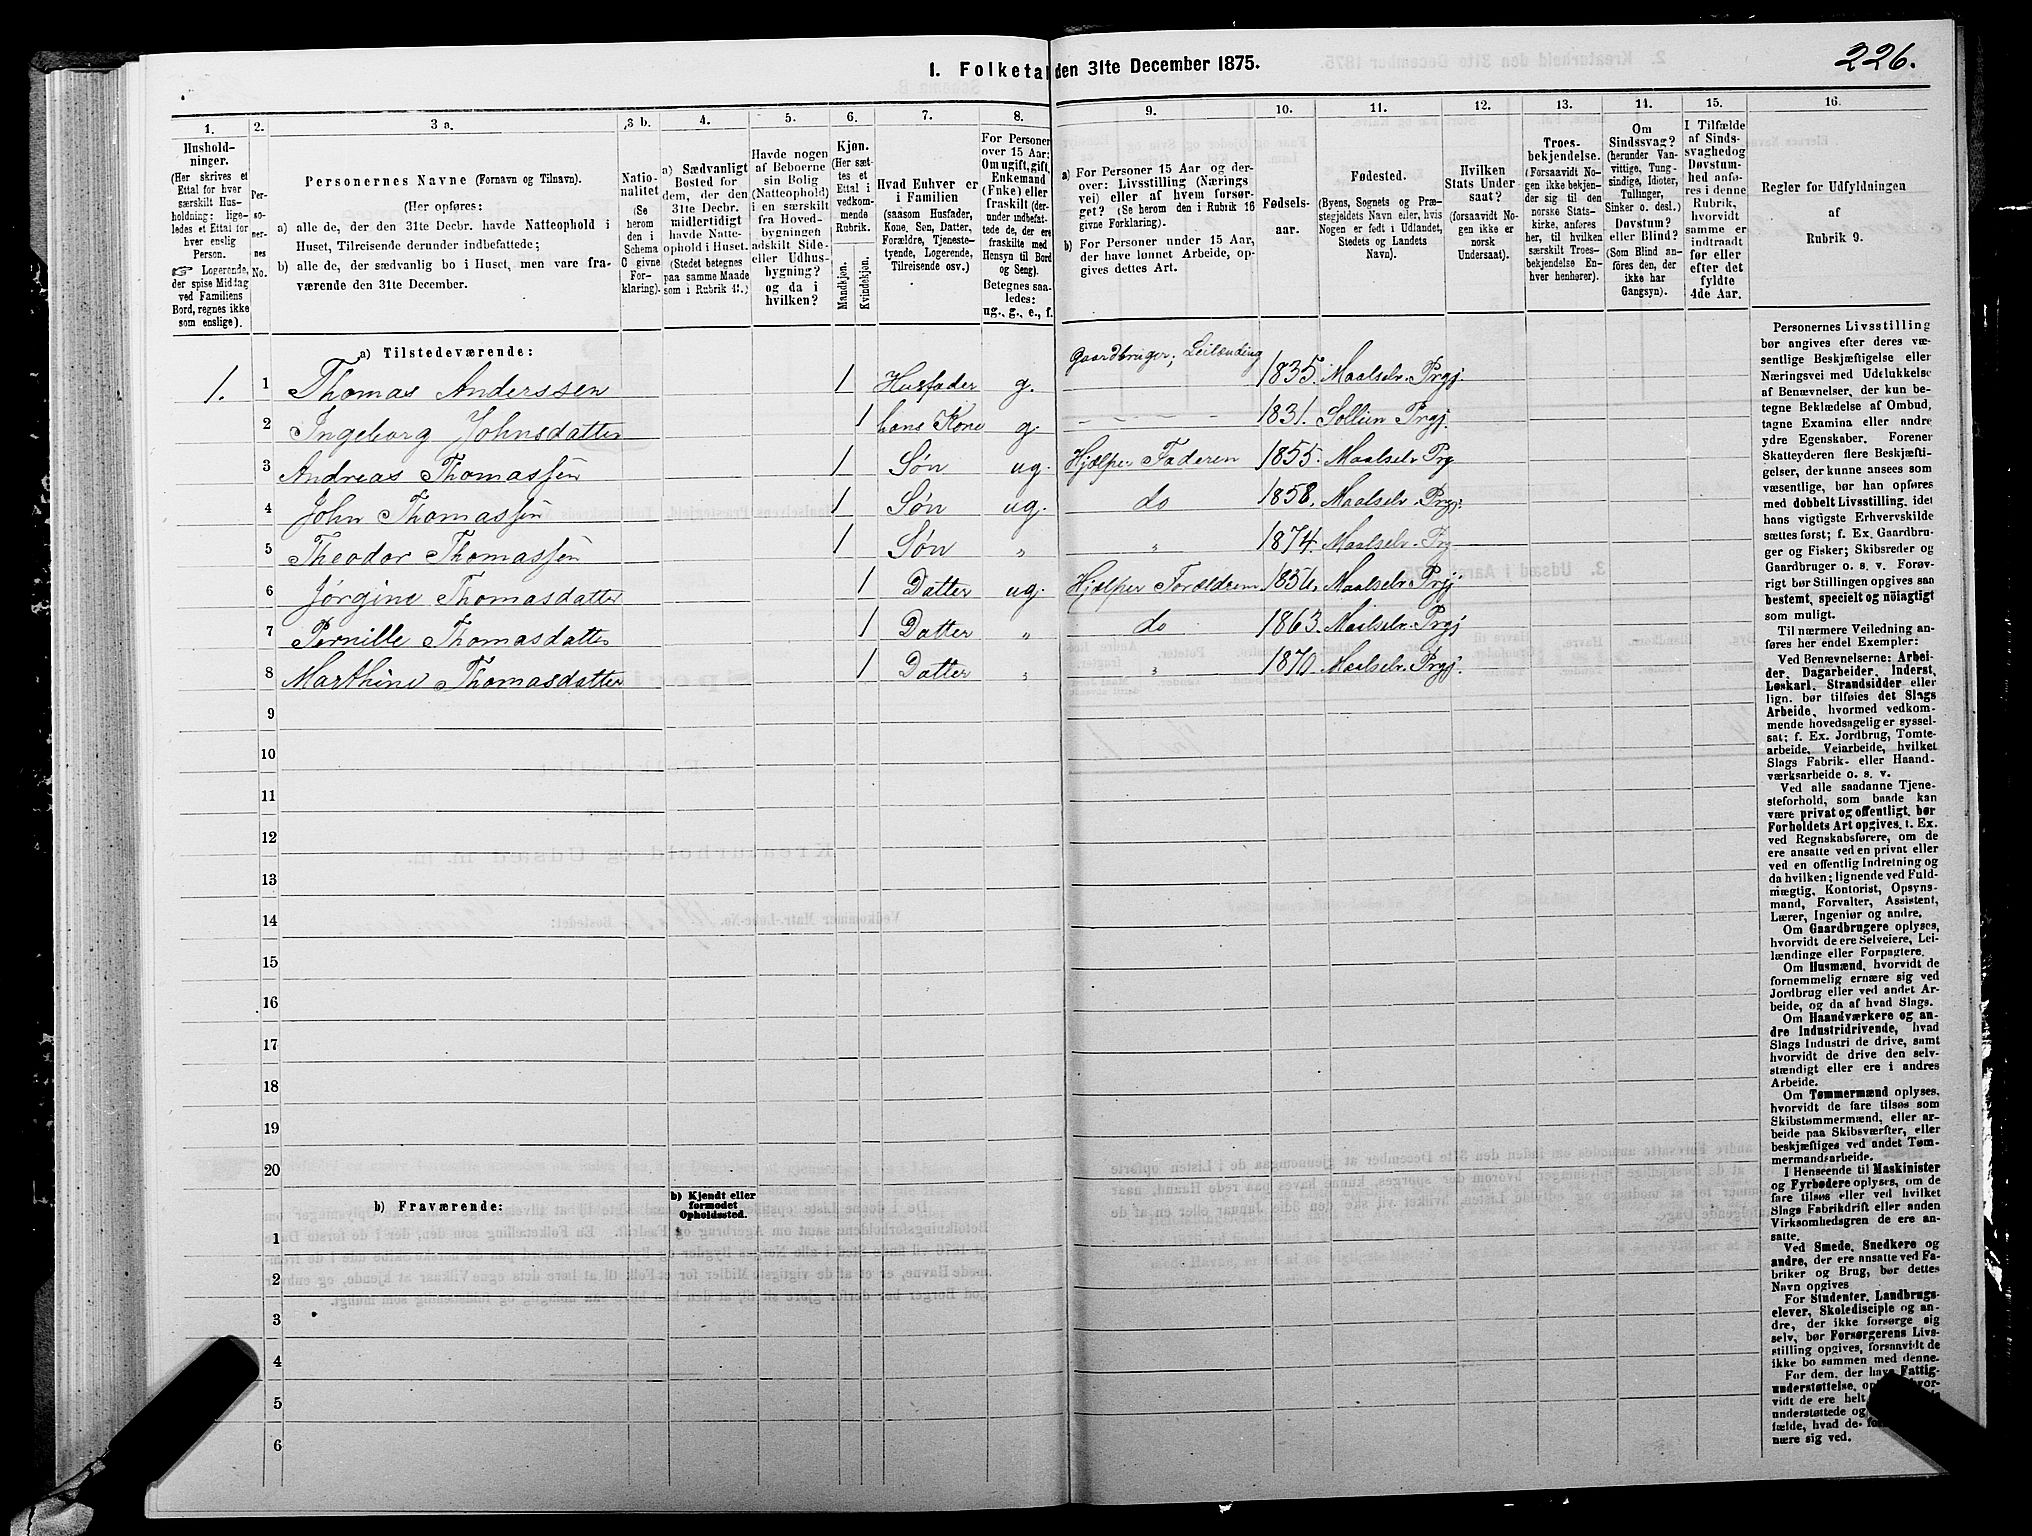 226.
1. Folketal den 31te December 1875.
1.
2.
3 a.
3 b.
4.
5.
6.
7.
8.
9.
10.
11.
12.
13.
14.
15.
16.
Hushold-
ninger.
(Her skrives et
Ettal for hver
særskilt Hus-
holdning: lige-
ledes et Ettal for
hver enslig
Person.
☞ Logerende,
der spise Middag
ved Familiens
Bord, regnes ikke
som enslige).
Per-
so-
ner-
nes
No.
Personernes Navne (Fornavn og Tilnavn).
(Her opføres:
a) alle de, der den 31te Decbr. havde Natteophold i
Huset, Tilreisende derunder indbefattede;
b) alle de, der sædvanlig bo i Huset, men vare fra-
værende den 31te December.
Natio-
nalitet
(Se
herom
den i
Schema
C givne
For-
klaring).
a) Sædvanligt
Bosted for
dem, der den
31te Decbr.
midlertidigt
havde Natte-
ophold i Huset.
(Stedet betegnes
paa samme Maade
som i Rubrik 11.)
Havde nogen
af Beboerne
sin Bolig
(Natteophold)
i en særskilt
fra Hoved-
bygningen
adskilt Side-
eller Udhus-
bygning?
og da i
hvilken?
Kjøn.
(Her sæt-
tes et
Ettal i
vedkom-
mende
Rubrik.
Mandkjøn.
Kvindekjøn.
Hvad Enhver er
i Familien
(saasom Husfader,
Kone, Søn, Datter,
Forældre, Tjeneste-
tyende, Logerende,
Tilreisende osv.)
For Personer
over 15 Aar:
Om ugift, gift,
Enkemand
(Enke) eller
fraskilt (der-
under indbefat-
tede de, der ere
fraskilte med
Hensyn til Bord
og Seng).
Betegnes saa-
ledes:
ug., g., e., f.
a) For Personer 15 Aar og der-
over: Livsstilling (Nærings
vei) eller af hvem forsør-
get? (Se herom den i Rubrik 16
givne Forklaring).
b) For Personer under 15 Aar,
der have lønnet Arbeide, op-
gives dettes Art.
Fødsels-
aar.
Fødested.
(Byens, Sognets og Præ-
stegjeldets Navn eller, hvis
Nogen er født i Udlandet,
Stedets og Landets
Navn).
Hvilken
Stats Under
saat?
(forsaavidt No-
gen ikke er
norsk
Undersaat).
Troes-
bekjendelse.
(Forsaavidt No-
gen ikke bekjen-
der sig til den
norske Stats-
kirke, anføres
her, til hvilken
særskilt Troes-
bekjendelse En-
hver henhører).
Om
Sindssvag?
(herunder Van-
vittige, Tung-
sindige, Idioter,
Tullinger,
Sinker o. desl.)
Døvstum?
eller Blind?
(Som Blind an-
føres den, der
ikke har
Gangsyn).
I Tilfælde
af Sinds-
svaghed og
Døvstum-
hed anfø-
res i denne
Rubrik,
hvorvidt
samme er
indtraadt
før eller
efter det
fyldte
4de Aar.
Regler for Udfyldningen
af
Rubrik 9.
a) Tilstedeværende:
1. 1 Thomas Anderssen 1 Husfader g. Gaardbruger, Leilænding 1835. Maalselv. Prgj.
2 Ingeborg Johnsdatter 1 hans Kone g. 1831. Sollien Prgj.
3 Andreas Thomassen 1 Søn ug. Hjælper Faderen 1855. Maalselv. Prg
4 John Thomassen 1 Søn ug. do 1858. Maalselv. Prgj.
5 Theodor Thomassen 1 Søn „ „ 1874. Maalselv. Prg
6 Jørgine Thomasdatter 1 Datter ug. Hjælper Forældrene 1856. Maalselv. Prgj
7 Pernille Thomasdatter 1 Datter „ do 1863. Maalselv. Prgj
8 Marthine Thomasdatter 1 Datter „ „ 1870. Maalselv. Prgj.
9
10
11
12
13
14
15
16
17
18
19
20
b) Fraværende:
b) Kjendt eller
formodet
Opholdssted.
1
2
3
4
5
6
Personernes Livsstilling
bør angives efter deres væ-
sentlige Beskjæftigelse eller
Næringsvei med Udelukkelse
af Benævnelser, der kun be-
tegne Beklædelse af Ombud,
tagne Examina eller andre
ydre Egenskaber. Forener
Skatteyderen flere Beskjæfti-
gelser, der kunne ansees som
væsentlige, bør han opføres
med dobbelt Livsstilling, idet
hans vigtigste Erhvervskilde
sættes først; f. Ex. Gaardbru-
ger og Fisker; Skibsreder og
Gaardbruger o. s. v. Forøv-
rigt bør Stillingen opgives saa
bestemt, specielt og nöiagtigt
som muligt.
Til nærmere Veiledning an-
føres her endel Exempler:
Ved Benævnelserne: Arbei-
der, Dagarbeider, Inderst,
Løskarl, Strandsidder eller
lign. bør tilføies det Slags
Arbeide, hvormed vedkom-
mende hovedsagelig er syssel-
sat; f. Ex. Jordbrug, Tomte-
arbeide, Veiarbeide, hvilket
Slags Fabrik- eller Haand-
værksarbeide o. s. v.
Ved alle saadanne Tjene-
steforhold, som baade kan
være privat og offentligt, bør
Forholdets Art opgives, t. Ex.
ved Regnskabsførere, om de
ere ansatte ved en privat eller
ved en offentlig Indretning og
da hvilken; lignende ved Fuld-
mægtig, Kontorist, Opsyns-
mand, Forvalter, Assistent,
Lærer, Ingeniør og andre.
Om Gaardbrugere oplyses,
hvorvidt de ere Selveiere, Lei-
lændinge eller Forpagtere.
Om Husmænd, hvorvidt de
fornemmelig ernære sig ved
Jordbrug eller ved andet Ar-
beide, og da af hvad Slags.
Om Haandværkere og an-
dre Industridrivende, hvad
Slags Industri de drive, samt
hvorvidt de drive den selv-
stændigt eller ere i andres
Arbeide.
Om Tømmermænd oplyses,
hvorvidt de fare tilsøs som
Skibstømmermænd, eller ar-
beide paa Skibsværfter, eller
beskjæftiges ved andet Tøm-
mermandsarbeide.
I Henseende til Maskinister
og Fyrbødere oplyses, om de
fare tilsøs eller ved hvilket
Slags Fabrikdrift eller anden
Virksomhedsgren de ere an-
satte.
Ved Smede, Snedkere og
andre, der ere ansatte ved Fa-
briker og Brug, bør dettes
Navn opgives
For Studenter, Landbrugs-
elever, Skoledisciple og an-
dre, der ikke forsørge sig
selv, bør Forsørgerens Livs-
stilling opgives, forsaavidt de
ikke bo sammen med denne.
For dem, der have Fattig-
understøttelse,
vidt de ere helt
understøttede og
fælde, hvad de
nære sig ved.